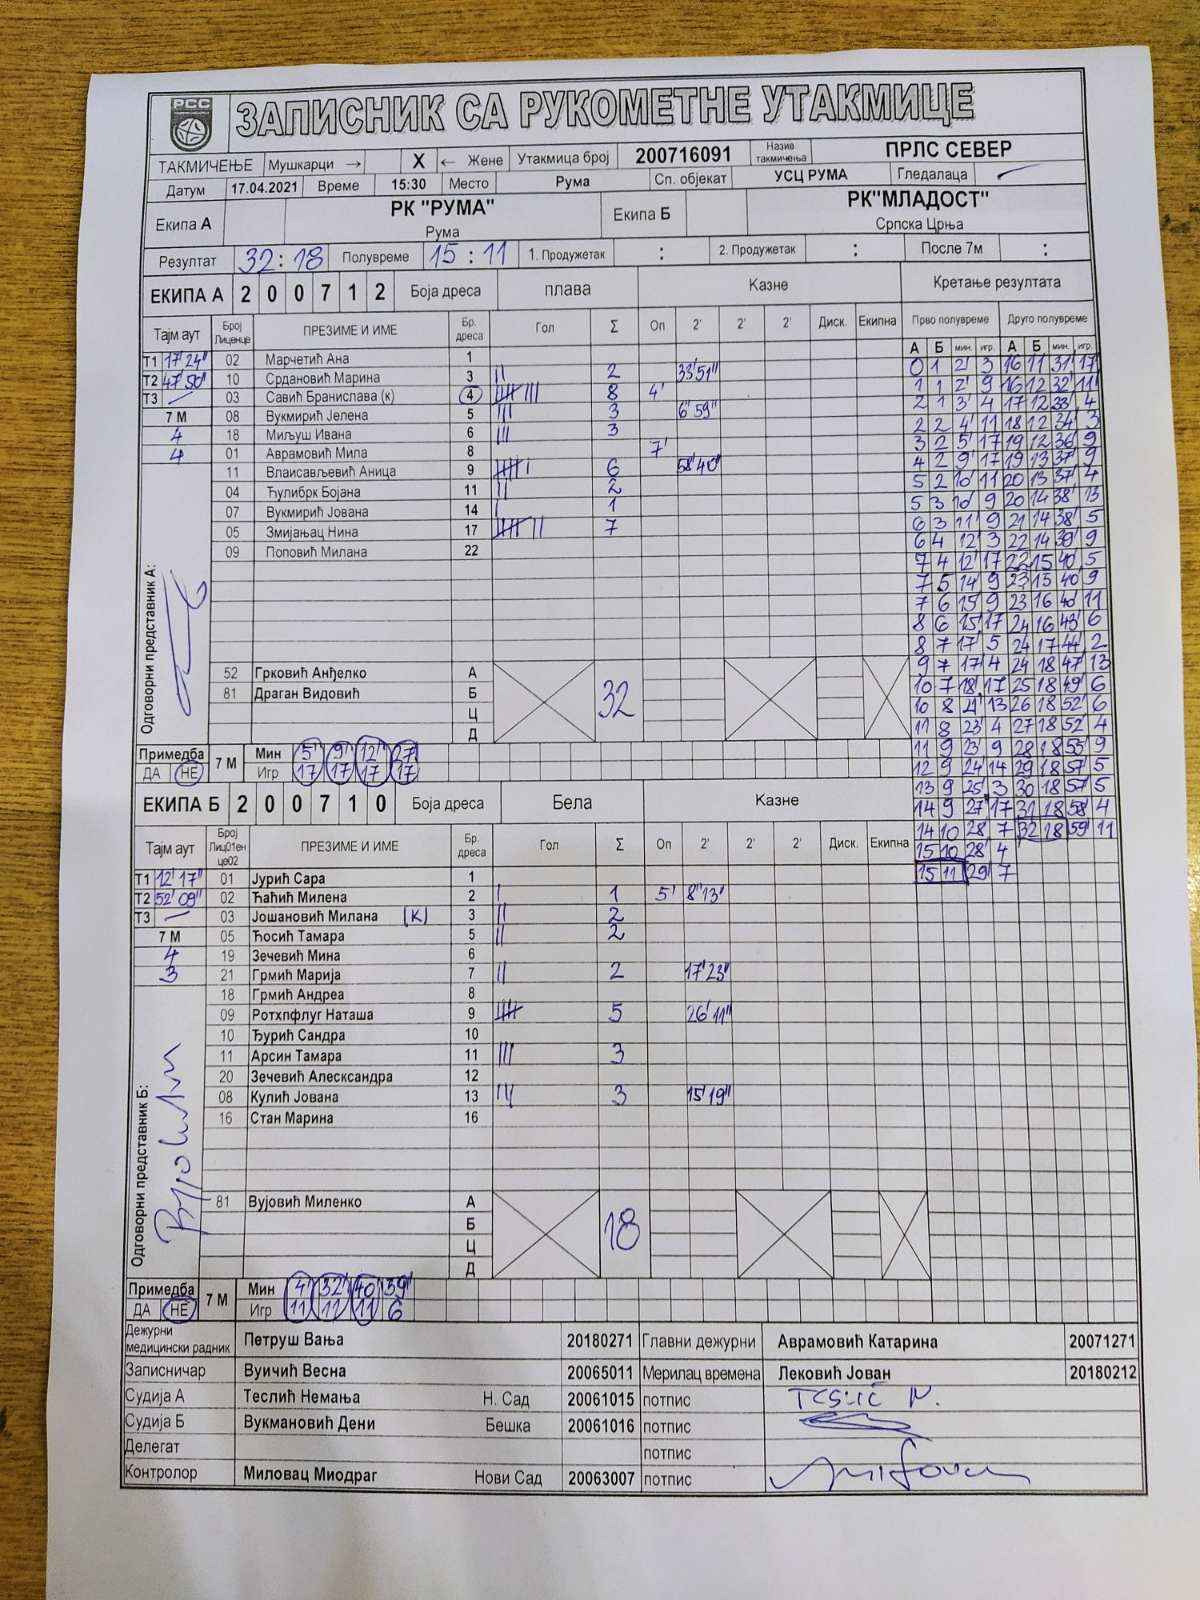 РСС
ЗАПИСНИК СА РУКОМЕТНЕ УТАКМИЦЕ
ТАКМИЧЕЊЕ Мушкарци → X ← Жене Утакмица број 200716091 Назив такмичења ПРЛС СЕВЕР
Датум 17.04.2021 Време 15:30 Место Рума Сп. објекат УСЦ РУМА Гледалаца
Екипа А РК "РУМА" Рума Екипа Б РК"МЛАДОСТ" Српска Црња
Резултат 32:18 Полувреме 15:11 1. Продужетак : 2. Продужетак : После 7м :
ЕКИПА А 2 0 0 7 1 2 Боја дреса плава Казне Кретање резултата
Тајм аут Број Лиценце ПРЕЗИМЕ И ИМЕ Бр. дреса Гол Σ Оп 2' 2' 2' Диск. Екипна Прво полувреме Друго полувреме
А Б мин. игр. А Б мин. игр.
Т1 17'24" 02 Марчетић Ана 1
Т2 47'50" 10 Срдановић Марина 3 || 2 33'51"
Т3 03 Савић Бранислава (к) 4 8 4'
7 М 08 Вукмирић Јелена 5 ||| 3 6'59"
4 18 Миљуш Ивана 6 ||| 3
4 01 Аврамовић Мила 8 7'
11 Влаисављевић Аница 9 6 58'40"
04 Ћулибрк Бојана 11 || 2
07 Вукмирић Јована 14 | 1
05 Змијањац Нина 17 7
09 Поповић Милана 22
Одговорни представник А:
52 Грковић Анђелко А
81 Драган Видовић Б
Ц
Д
32
Примедба ДА НЕ 7 М Мин 5' 9' 12' 27'
Игр 17 17 17 17
0 1 2' 3 16 11 31' 17
1 1 2' 9 16 12 32' 11
2 1 3' 4 17 12 33' 4
2 2 4' 11 18 12 34' 3
3 2 5' 17 19 12 36' 9
4 2 9' 17 19 13 37' 9
5 2 10' 11 20 13 37' 4
5 3 10' 9 20 14 38' 13
6 3 11' 9 21 14 38' 5
6 4 12' 3 22 14 39' 9
7 4 12' 17 22 15 40' 5
7 5 14' 9 23 15 40' 9
7 6 15' 9 23 16 40' 11
8 6 15' 17 24 16 43' 6
8 7 17' 5 24 17 44' 2
9 7 17' 4 24 18 47' 13
10 7 18' 17 25 18 49' 6
10 8 21' 13 26 18 52' 6
11 8 23' 4 27 18 52' 4
11 9 23' 9 28 18 55' 9
12 9 24' 14 29 18 57' 5
13 9 25' 3 30 18 57' 5
14 9 27' 17 31 18 58' 4
14 10 28' 7 32 18 59' 11
15 10 28' 4
15 11 29' 7
ЕКИПА Б 2 0 0 7 1 0 Боја дреса Бела Казне
Тајм аут Број Лиц01ен це02 ПРЕЗИМЕ И ИМЕ Бр. дреса Гол Σ Оп 2' 2' 2' Диск. Екипна
Т1 12'17" 01 Јурић Сара 1
Т2 52'09" 02 Ћаћић Милена 2 | 1 5' 8'13"
Т3 03 Јошановић Милана (К) 3 || 2
7 М 05 Ћосић Тамара 5 || 2
4 19 Зечевић Мина 6
3 21 Грмић Марија 7 || 2 17'23"
18 Грмић Андреа 8
09 Ротхпфлуг Наташа 9 5 26'11"
10 Ђурић Сандра 10
11 Арсин Тамара 11 ||| 3
20 Зечевић Алескsандра 12
08 Кулић Јована 13 ||| 3 15'19"
16 Стан Марина 16
Одговорни представник Б:
81 Вујовић Миленко А
Б
Ц
Д
18
Примедба ДА НЕ 7 М Мин 4' 32' 40' 39'
Игр 11 11 11 6
Дежурни медицински радник Петруш Вања 20180271 Главни дежурни Аврамовић Катарина 20071271
Записничар Вуичић Весна 20065011 Мерилац времена Лековић Јован 20180212
Судија А Теслић Немања Н. Сад 20061015 потпис
Судија Б Вукмановић Дени Бешка 20061016 потпис
Делегат потпис
Контролор Миловац Миодраг Нови Сад 20063007 потпис